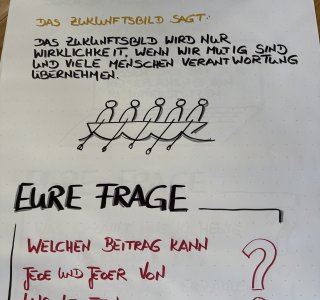 DAS ZUKUNFTSBILD SAGT:
DAS ZUKUNFTSBILD WIRD NUR
WIRKLICHKEIT, WENN WIR MUTIG SIND
UND VIELE MENSCHEN VERANTWORTUNG
ÜBERNEHMEN.
EURE FRAGE
WELCHEN BEITRAG KANN
JEDE UND JEDER VON
?